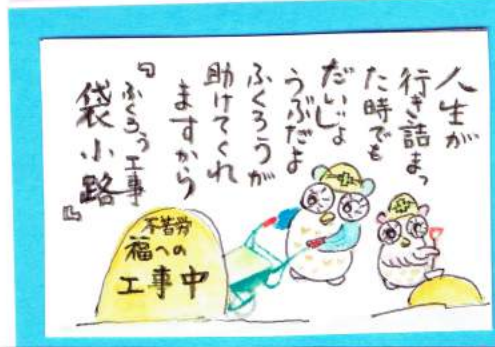 人生が
行き詰まっ
た時でも
だいじょ
うぶだよ
ふくろうが
助けてくれ
ますから
『ふくろう工事
袋小路』
不苦労
福への
工事中